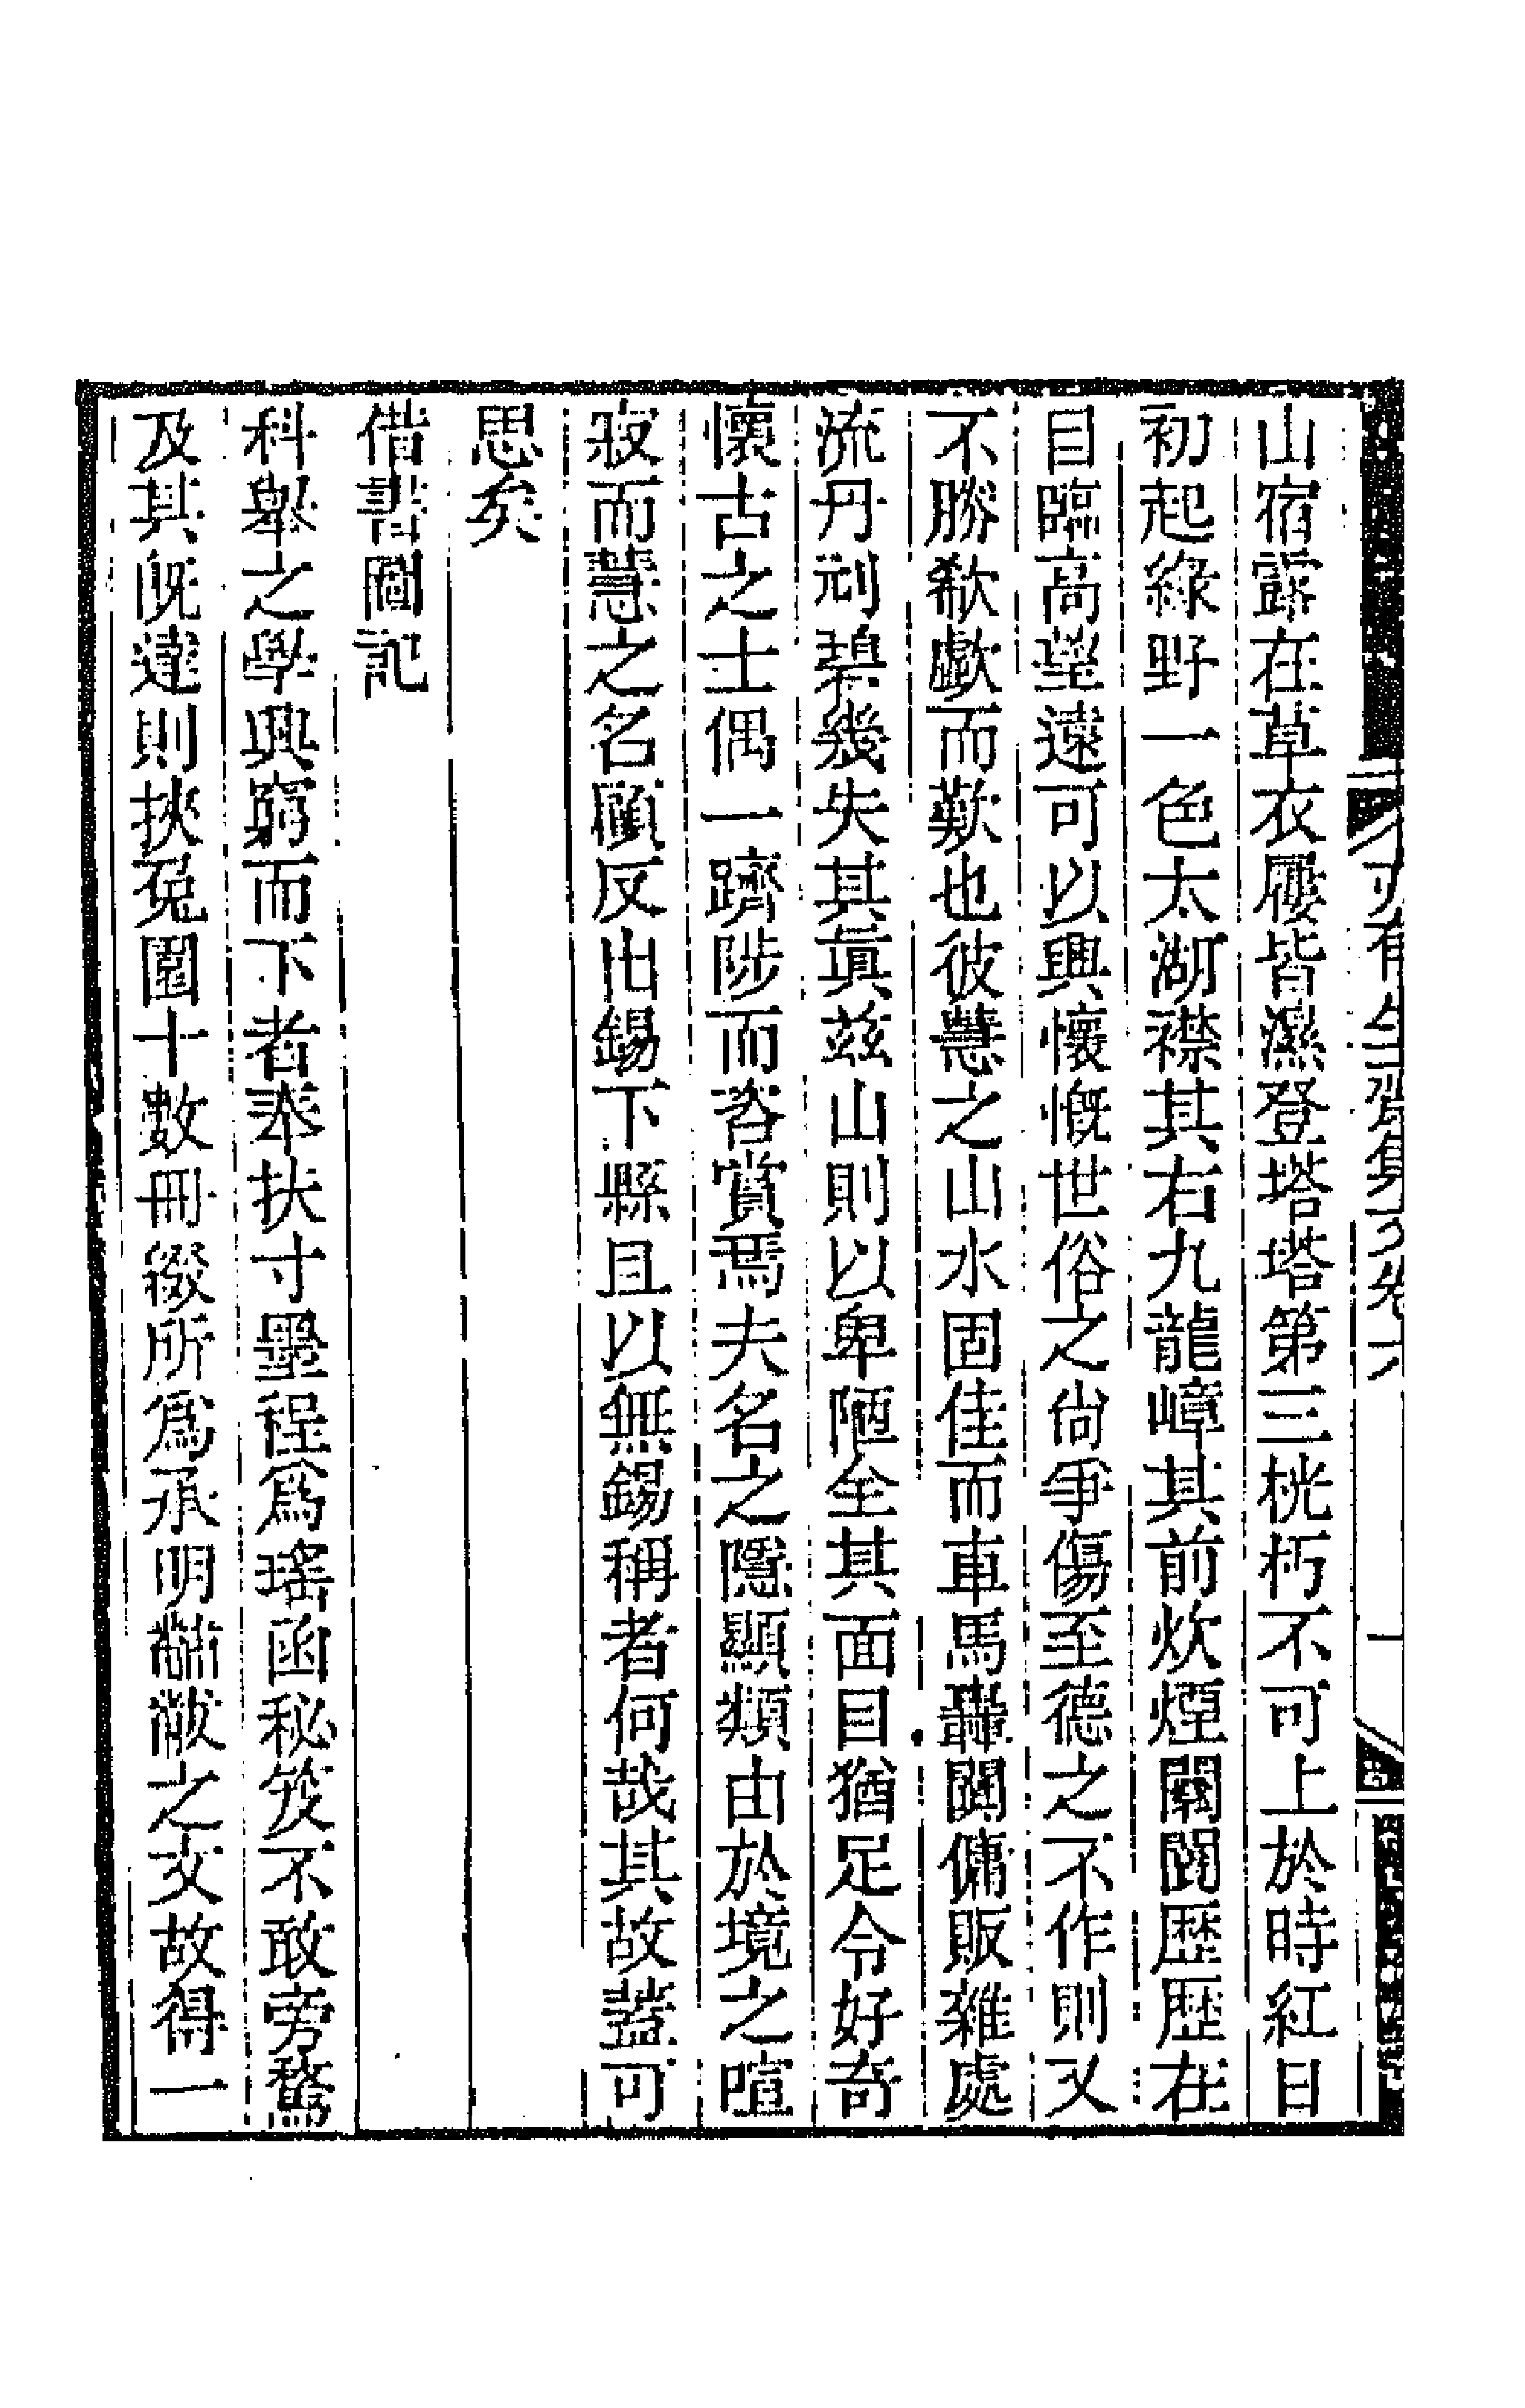 山宿露在草衣屨皆濕登塔塔第三桄朽不可上於時紅日
初起綠野一色太湖襟其右九龍嶂其前炊煙闤闠歷歷在
目臨高望遠可以興懷慨世俗之尙爭傷至德之不作則又
不勝欷歔而歎也彼慧之山水固佳而車馬轟闐傭販雜處
流丹刓碧幾失其眞茲山則以卑陋全其面目猶足令好奇
懷古之士偶一躋陟而咨賞焉夫名之隱顯類由於境之喧
寂而慧之名顧反出錫下縣且以無錫稱者何哉其故蓋可
思矣
借書圖記
科舉之學興窮而下者奉扶寸墨程爲瑤函秘笈不敢旁騖
及其旣達則挾兔園十數冊綴所爲承明黼黻之文故得一
亦有生齋集文卷六